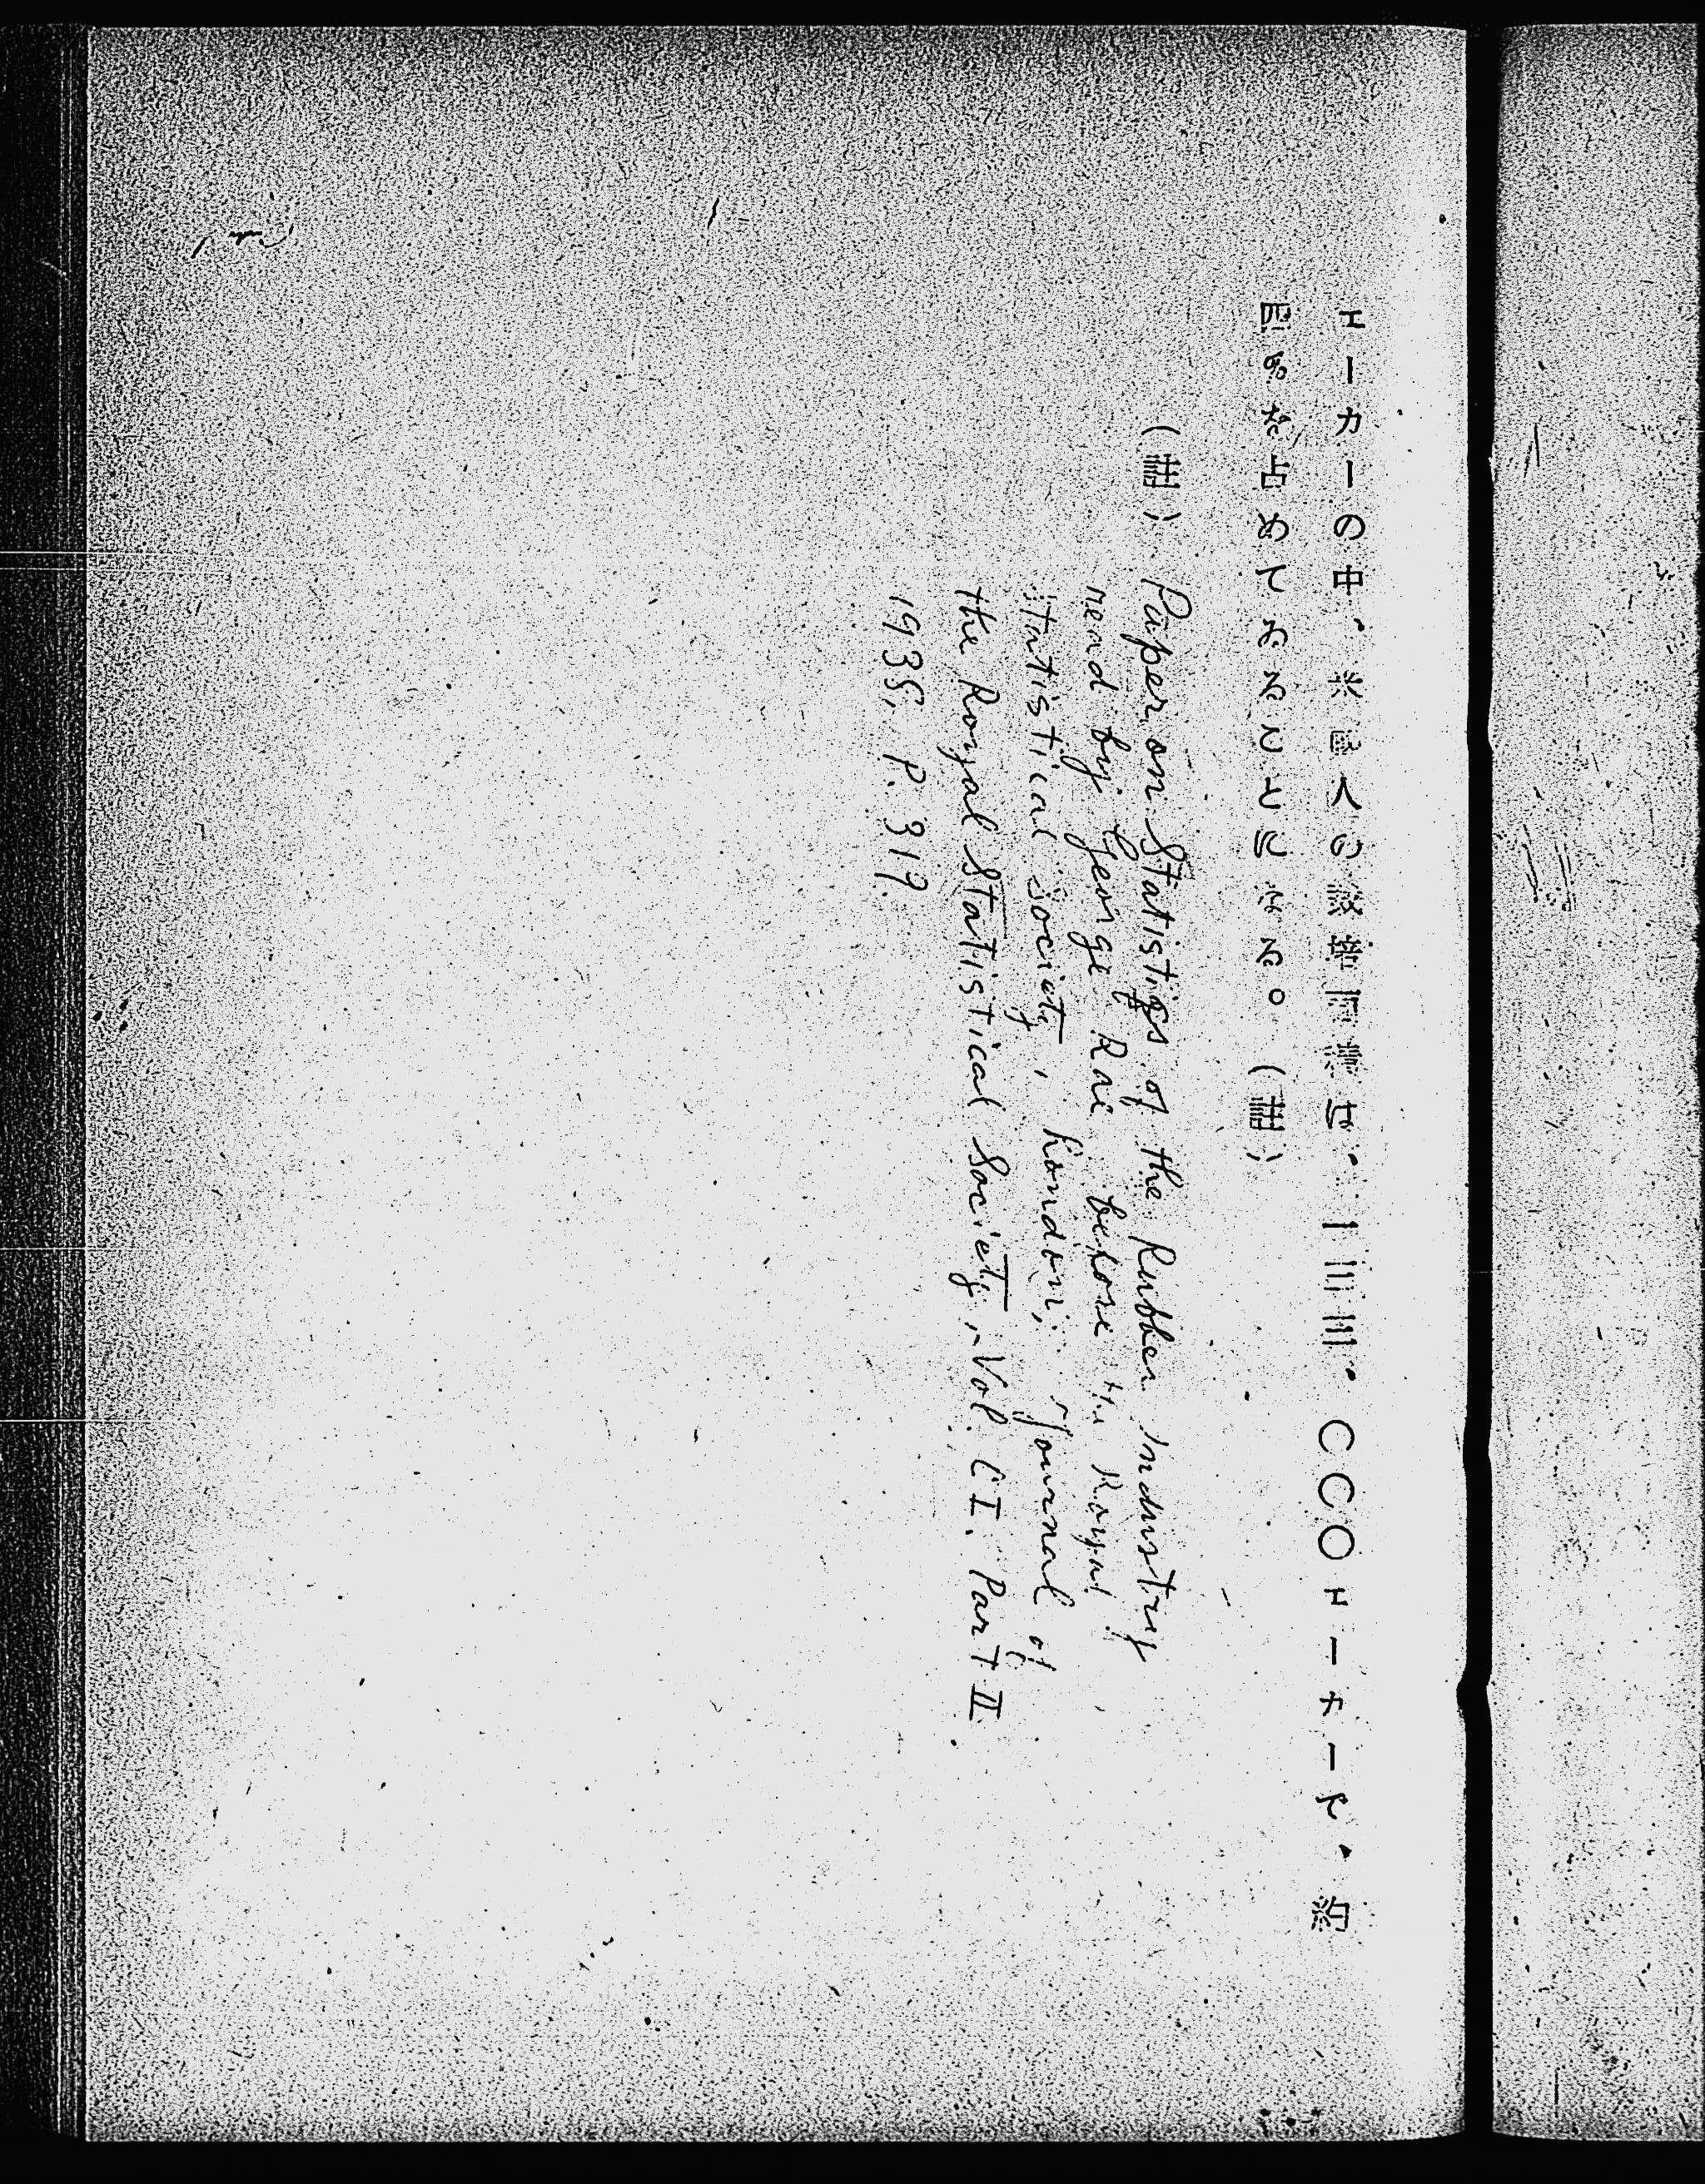 エーカーの中、米國人の栽培面積は、一三三・〇〇〇エーカーで、約
四％を占めてゐることになる。（註）
（註） Paper on Statistics of the Rubber Industry
read by George Rae before the Royal
Statistical Society, London; Journal of
the Royal Statistical Society, Vol. CI. Part II.
1938, P. 317.